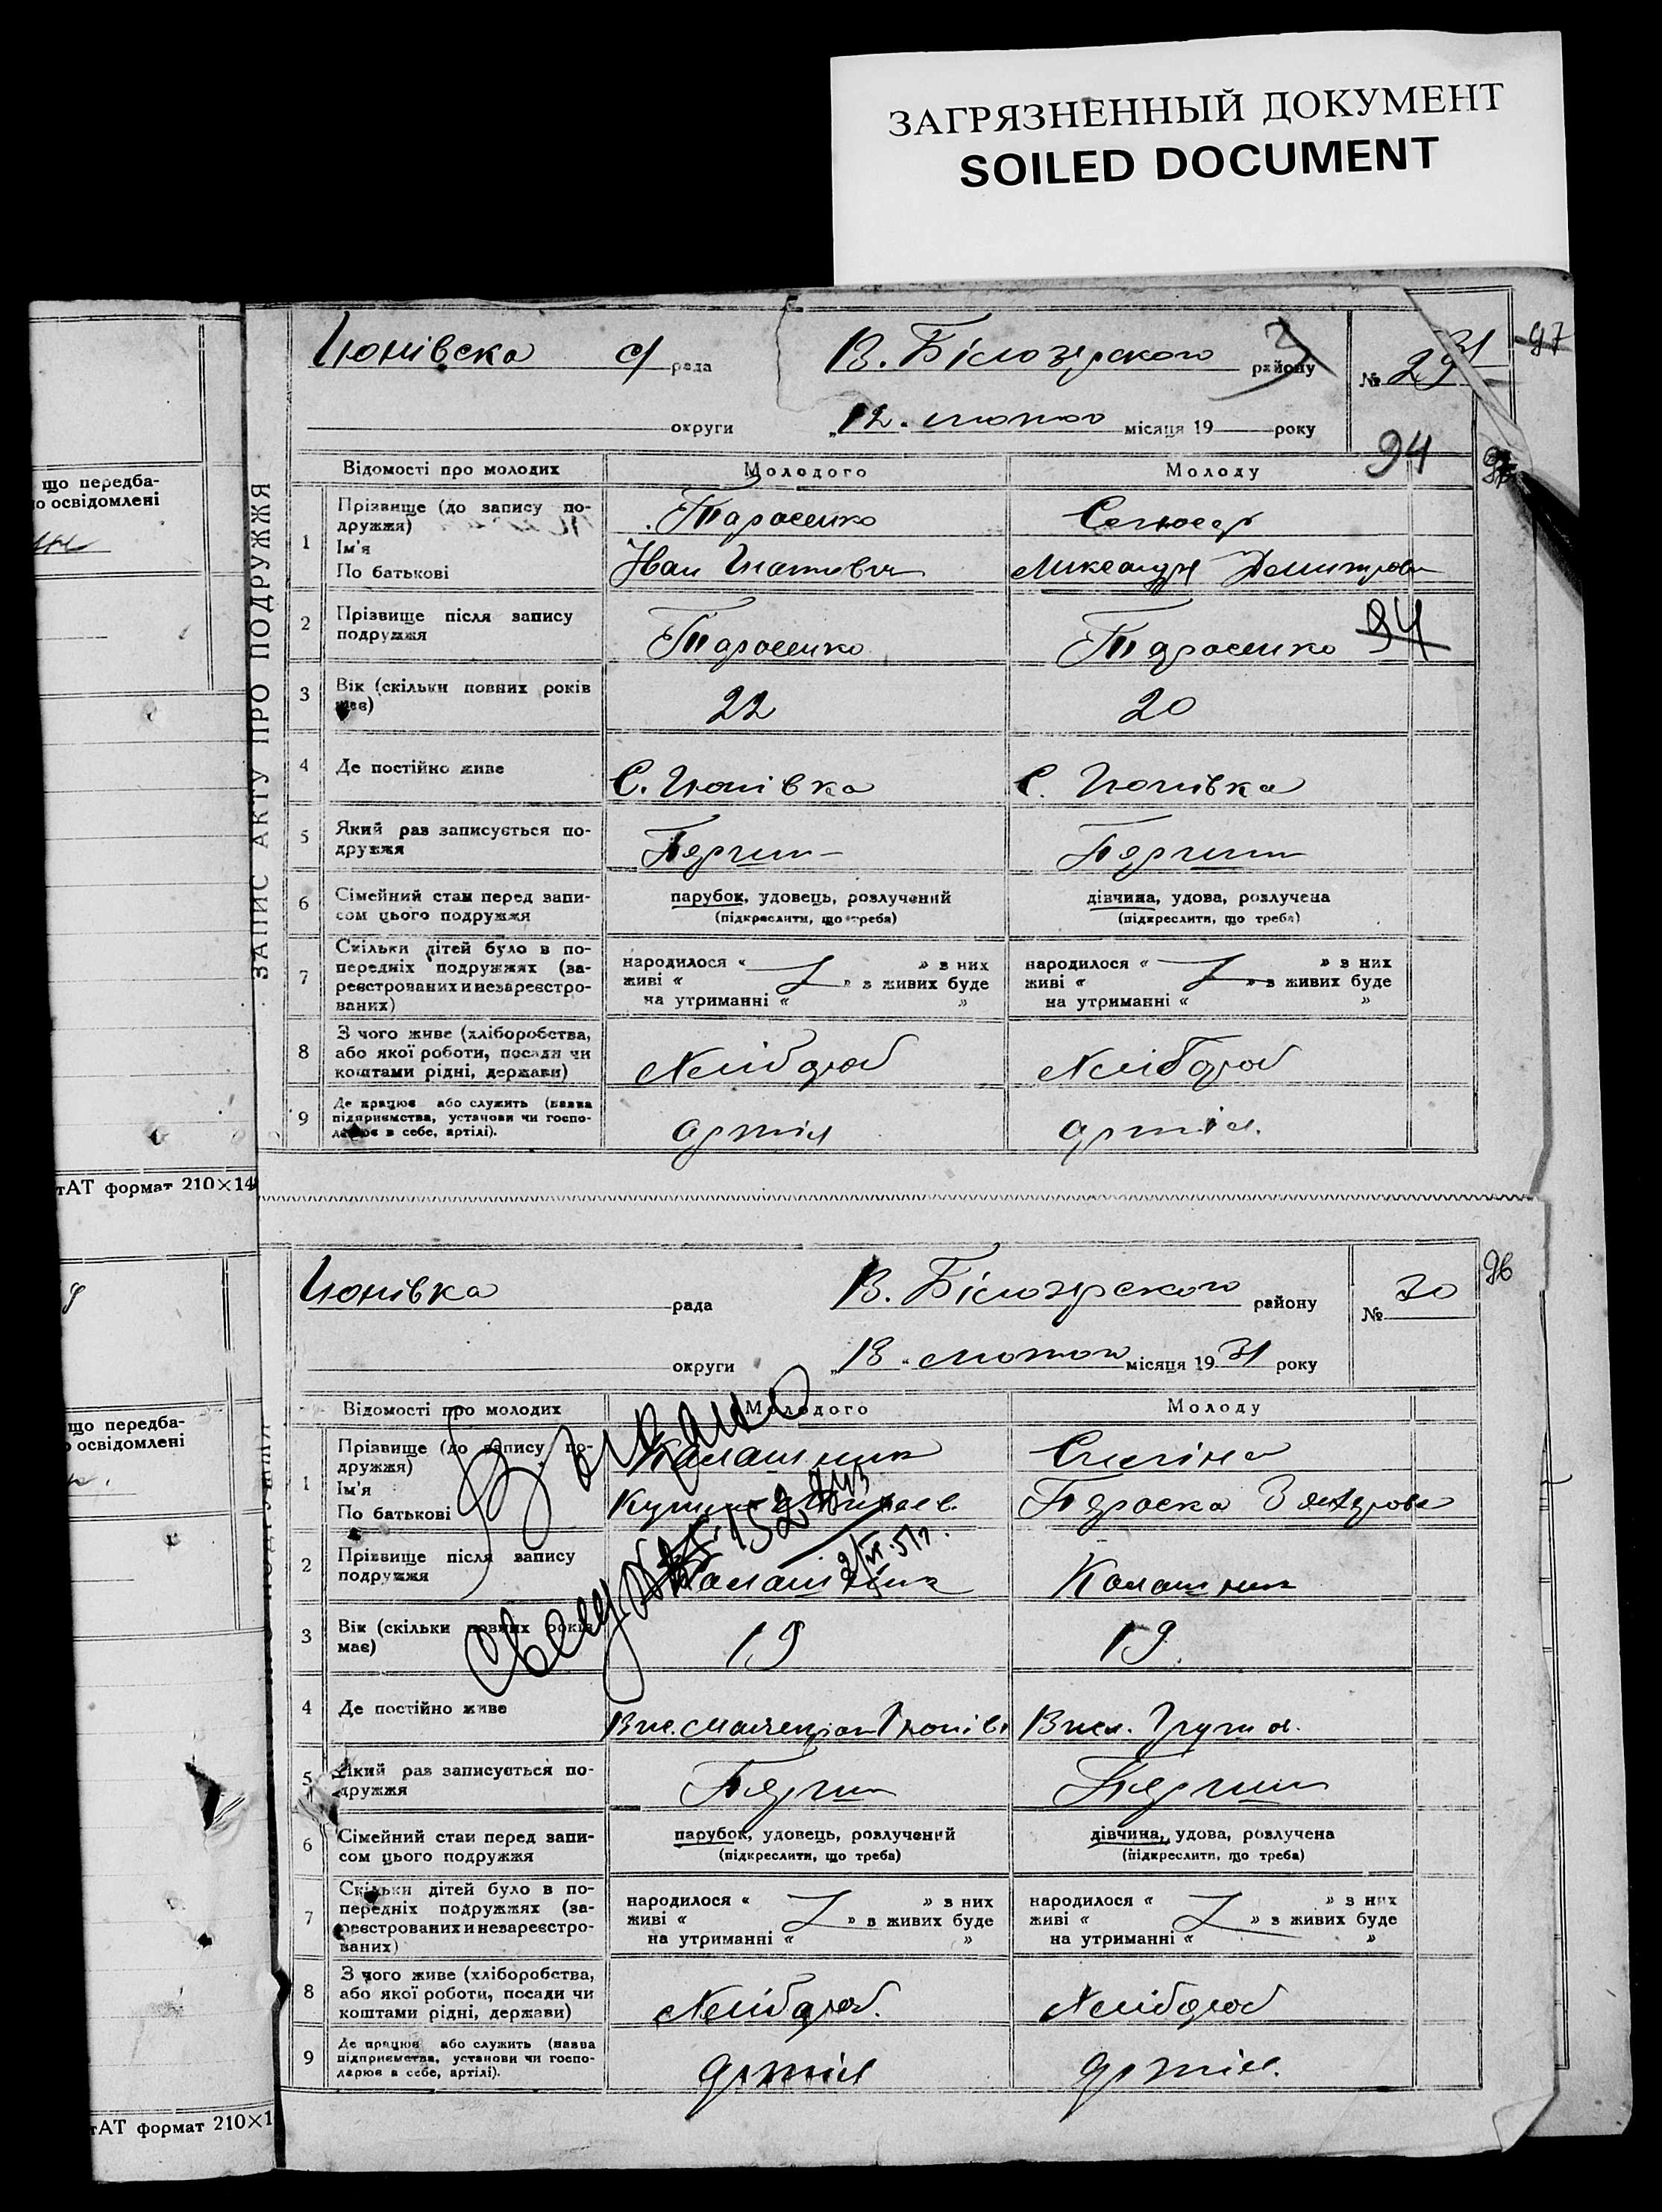 ЗАГРЯЗНЕННЫЙ ДОКУМЕНТ
SOILED DOCUMENT
що передба-
о освідомлені
тАТ формат 210×14
що передба-
освідомлені
тАТ формат 210×1
ЗАПИС АКТУ ПРО ПОДРУЖЖЯ
рада В. Білозерського району № 29 97
округи „12“ лютого місяця 19 року
94
Відомості про молодих Молодого Молоду
1 Прізвище (до запису по-
дружжя) Тарасенко
Ім'я
По батькові Иван
2 Прізвище після запису
подружжя Тарасенко Тарасенко 94
3 Вік (скільки повних років
має) 22 20
4 Де постійно живе
5 Який раз записується по-
дружжя Перши Перши
6 Сімейний стан перед запи-
сом цього подружжя
парубок, удовець, розлучений
(підкреслити, що треба)
дівчина, удова, розлучена
(підкреслити, що треба)
7 Скільки дітей було в по-
передніх подружжях (за-
реєстрованих и незареєстро-
ваних)
народилося « » з них
живі « » з живих буде
на утриманні « »
народилося « » з них
живі « » з живих буде
на утриманні « »
8 З чого живе (хліборобства,
або якої роботи, посади чи
коштами рідні, держави) Хлібороб Хлібороб
9 Де працює або служить (назва
підприємства, установи чи госпо-
дарює в себе, артілі). артіл артіл.
рада В. Білозерського району № 30 96
округи місяця 19 31 року
Відомості про молодих Молодого Молоду
1 Прізвище (до запису по-
дружжя) Калашник
Ім'я
По батькові
2 Прізвище після запису
подружжя Калашник Калашник
3 Вік (скільки повних років
має) 19 19
4 Де постійно живе
5 Який раз записується по-
дружжя Перши Перши
6 Сімейний стан перед запи-
сом цього подружжя
парубок, удовець, розлучений
(підкреслити, що треба)
дівчина, удова, розлучена
(підкреслити, що треба)
7 Скільки дітей було в по-
передніх подружжях (за-
реєстрованих и незареєстро-
ваних)
народилося « » з них
живі « » з живих буде
на утриманні « »
народилося « » з них
живі « » з живих буде
на утриманні « »
8 З чого живе (хліборобства,
або якої роботи, посади чи
коштами рідні, держави) Хлібороб. Хлібороб
9 Де працює або служить (назва
підприємства, установи чи госпо-
дарює в себе, артілі). артіл артіл.